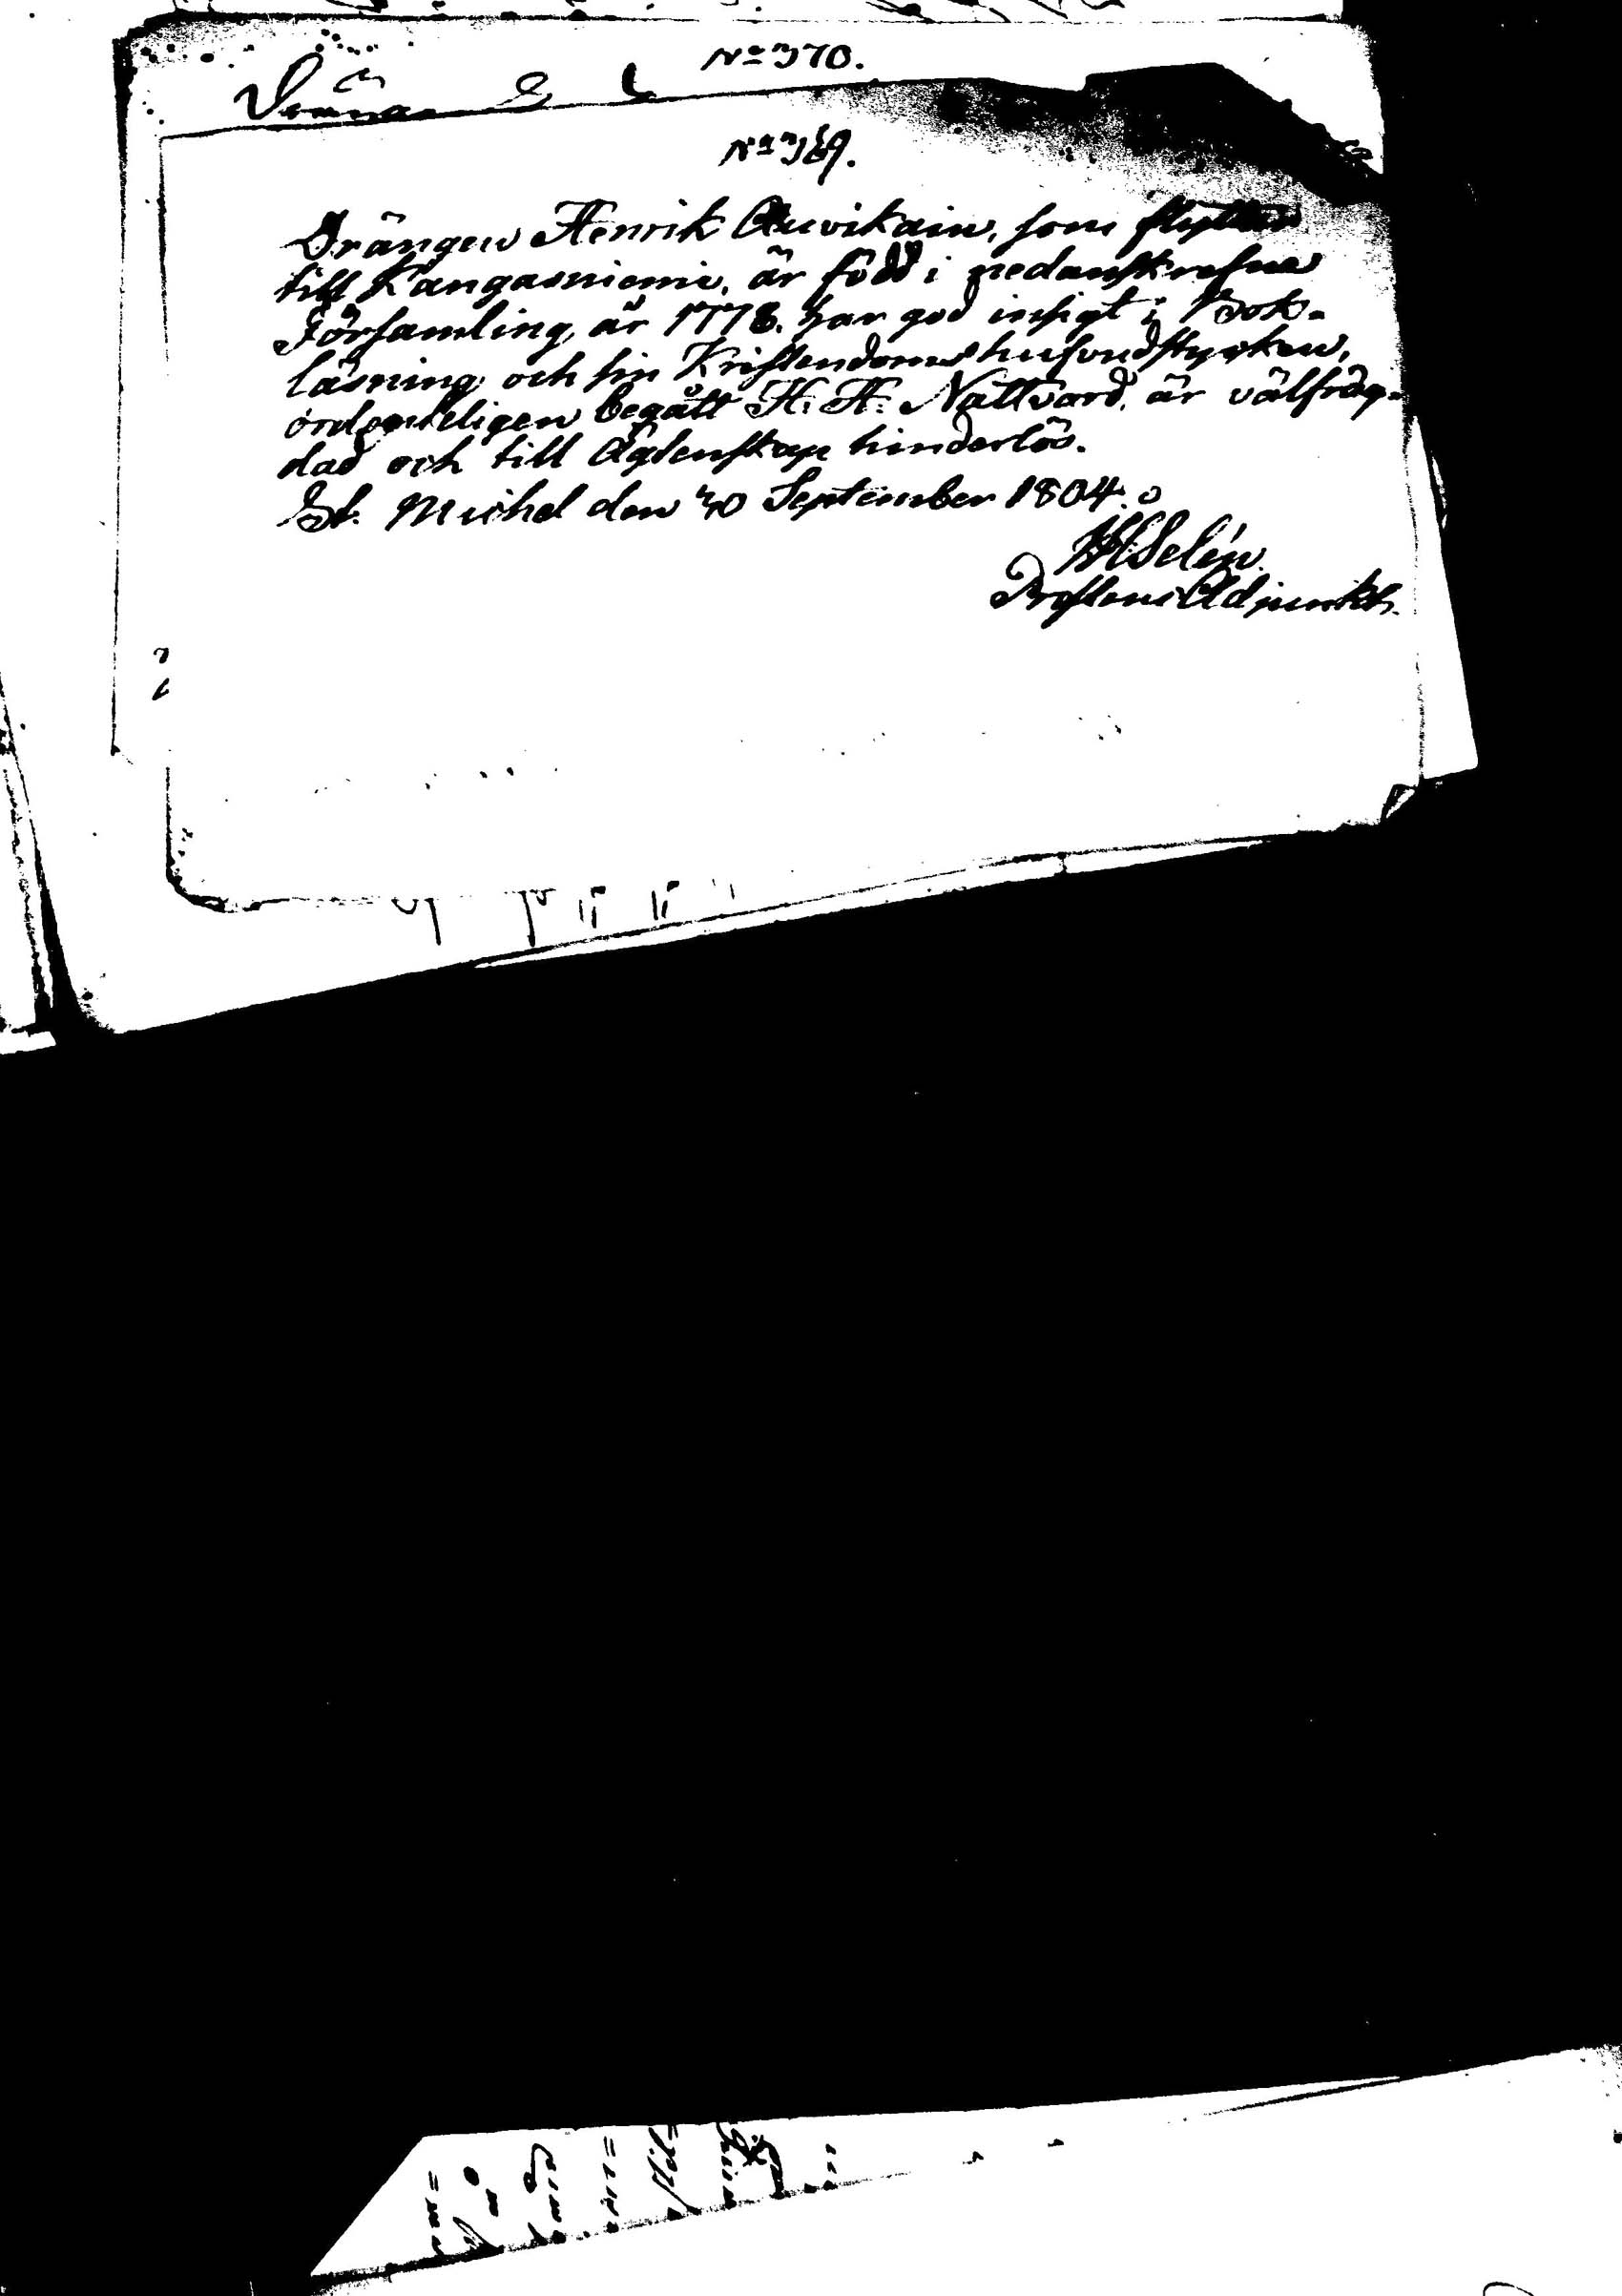 No 370.
No 369.
Drängen Henrik Auvikain, som flyttar
till Kangasniemi, är född i nedanskrefne
Församling, år 1778. har god insigt i Bok-
läsning och sin Kristendoms hufvudstycken,
ordenteligen begått H. H. Nattvard, är välfräg-
dad och till Ägtenskap hinderlös.
St. Michel den 30 September 1804.
Selén.
Prostens Adjunkt.